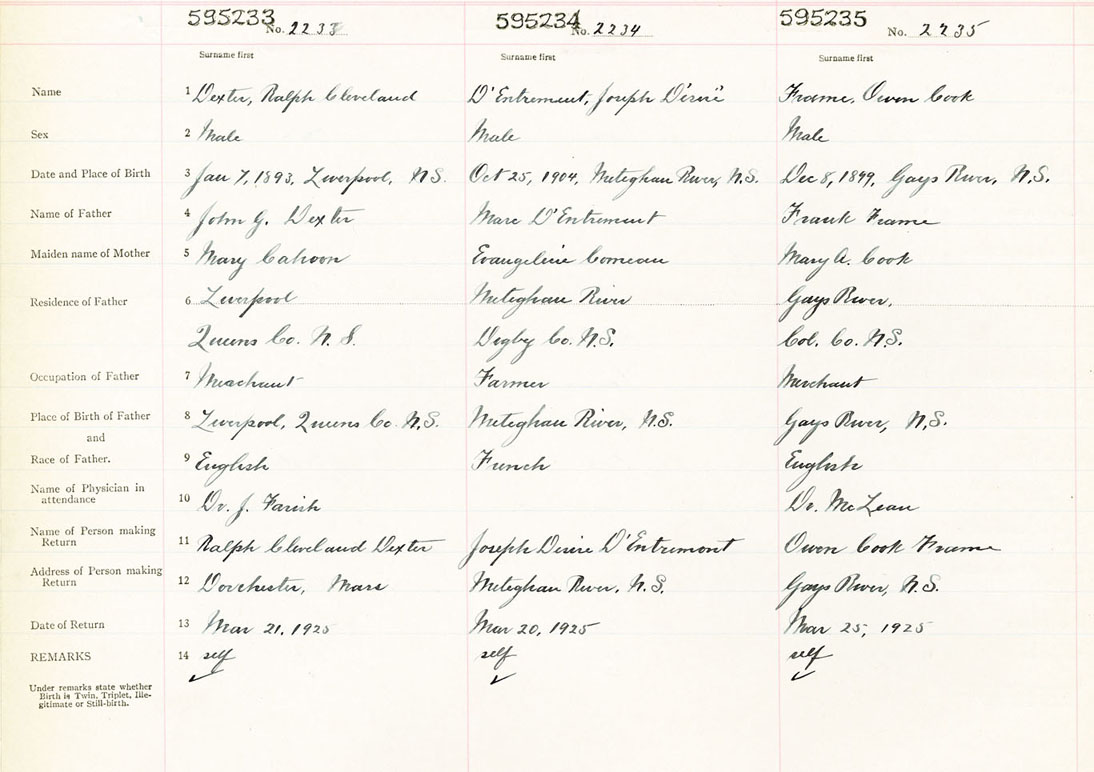 595233 No. 2233 595234 No. 2234 595235 No. 2235
Surname first Surname first Surname first
Name 1 Dexter, Ralph Cleveland D'Entremont, Joseph Désiré Frame, Owen Cook
Sex 2 Male Male Male
Date and Place of Birth 3 Jan 7, 1893, Liverpool, N.S. Oct 25, 1904, Meteghan River, N.S. Dec 8, 1899, Gays River, N.S.
Name of Father 4 John G. Dexter Marc D'Entremont Frank Frame
Maiden name of Mother 5 Mary Cahoon Evangeline Comeau Mary A. Cook
Residence of Father 6 Liverpool Meteghan River Gays River,
Queens Co. N.S. Digby Co. N.S. Col. Co. N.S.
Occupation of Father 7 Merchant Farmer Merchant
Place of Birth of Father 8 Liverpool, Queens Co. N.S. Meteghan River, N.S. Gays River, N.S.
and
Race of Father. 9 English French English
Name of Physician in
attendance 10 Dr. J. Farish Dr. McLean
Name of Person making
Return 11 Ralph Cleveland Dexter Joseph Desire D'Entremont Owen Cook Frame
Address of Person making
Return 12 Dorchester, Mass Meteghan River, N.S. Gays River, N.S.
Date of Return 13 Mar 21, 1925 Mar 20, 1925 Mar 25, 1925
REMARKS 14 self self self
Under remarks state whether
Birth is Twin, Triplet, Ille-
gitimate or Still-birth.